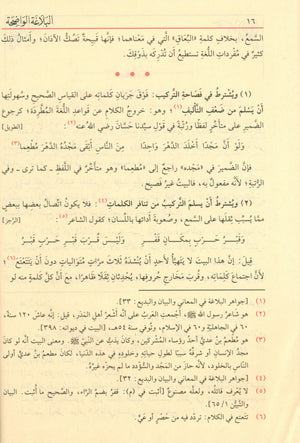 ١٦
البَلاغَة الوَاضِحَة
السَّمعُ، بخلافِ كلمةِ «النُّعَاقِ» الَّتي في مَعْناهما؛ فإنَّها قبيحةٌ تَصُكُّ الآذانَ؛ وأمثالُ ذلكَ
كثيرٌ في مُفْرداتِ اللُّغةِ تستطيعُ أن تُدْرِكَه بذَوْقِكَ.
(١) ويُشترطُ في فَصَاحةِ التَّركيبِ: فَوْقَ جَرَيانِ كلماتِه على القياسِ الصَّحيحِ وسُهولتِها
أنْ يَسْلمَ من ضَعْفِ التَّأليفِ(١)؛ وهو: خروجُ الكلامِ عن قَواعدِ اللُّغةِ المُطَّرِدَة؛ كرجوعِ
الضَّميرِ على متأخِّرٍ لفظًا ورُتْبةً في قولِ سيِّدِنا حسَّانَ رَضيَ اللهُ عنه(٢): [الطويل]
وَلَوْ أَنَّ مَجْدًا أَخْلَدَ الدَّهْرَ وَاحِدًا مِنَ النَّاسِ أَبْقَى مَجْدُهُ الدَّهْرَ مُطْعِمَا(٣)
فإنَّ الضَّميرَ في «مَجْدُه» راجعٌ إلى «مُطعِما» وهو متأخِّرٌ في اللَّفظِ ـ كما ترى ـ وفي
الرُّتبةِ؛ لأنَّه مفعولٌ به، فالبيتُ غيرُ فصيحٍ.
(٢) ويُشترطُ أنْ يَسلمَ التَّركيبُ من تنافرِ الكلماتِ(٤): فلا يكونُ اتِّصالُ بعضِها ببعضٍ
ممَّا يُسبِّب ثِقلَها على السَّمعِ، وصُعوبةَ أدائِها باللِّسانِ؛ كقولِ الشاعرِ(٥): [الرَّجز]
وَقَبْـرُ حَـرْبٍ بِمَكـانٍ قَفْـرٍ وَلَيْسَ قُرْبَ قَبْرِ حَرْبٍ قَبْرُ
قِيلَ: إنَّ هذا البيتَ لا يَتهيَّأُ لأحدٍ أنْ يُنشدَهُ ثلاثَ مرَّاتٍ مُتوالياتٍ دونَ أنْ يَتَتَعْتَعَ(٦)؛
لأنَّ اجتماعَ كلِماتِه، وقُربَ مَخارجِ حُروفِها، يُحْدِثانِ ثِقَلًا ظاهرًا، معَ أنَّ كلَّ كلمةٍ منه لو
(١) [جواهر البلاغة في المعاني والبيان والبديع: ٣٣]
(٢) هو شاعر رسول الله ﷺ، أجمعت العرب على أنه أشعر أهل المَدَر، قيل: إنَّه عاش ١٢٠ سنة،
٦٠ في الجاهلية و٦٠ في الإسلام، وتُوفي سنة ٥٤هـ. [البيت في ديوانه: ٣٩٨]
(٣) هو مُطعِمُ بنُ عديّ أحدُ رؤساء المشركين، وكان يذبُّ عن النبيّ ﷺ. ومعنى البيت أنه لو كان
مجدُ الإنسان أو شرفُه سببًا لطول حياته وخلوده في هذه الدنيا، لكان مطعمُ بنُ عديّ أولى
الناس بالخلود، لأنه حاز من المجد والسُّؤدد ما لم يحزه غيرُه.
(٤) [جواهر البلاغة في المعاني والبيان والبديع: ٣٢]
(٥) لا يُعرف قائلُه، ولعلَّه مصنوع [أثبت في (م): قفرٌ بضمّ الرَّاء، والصَّحيح ما أثبت. البيان
والتَّبيُّن ١/ ٦٥].
(٦) تَتَعتع في الكلام: تردَّد فيه من حَصَرٍ أو عِيٍّ.